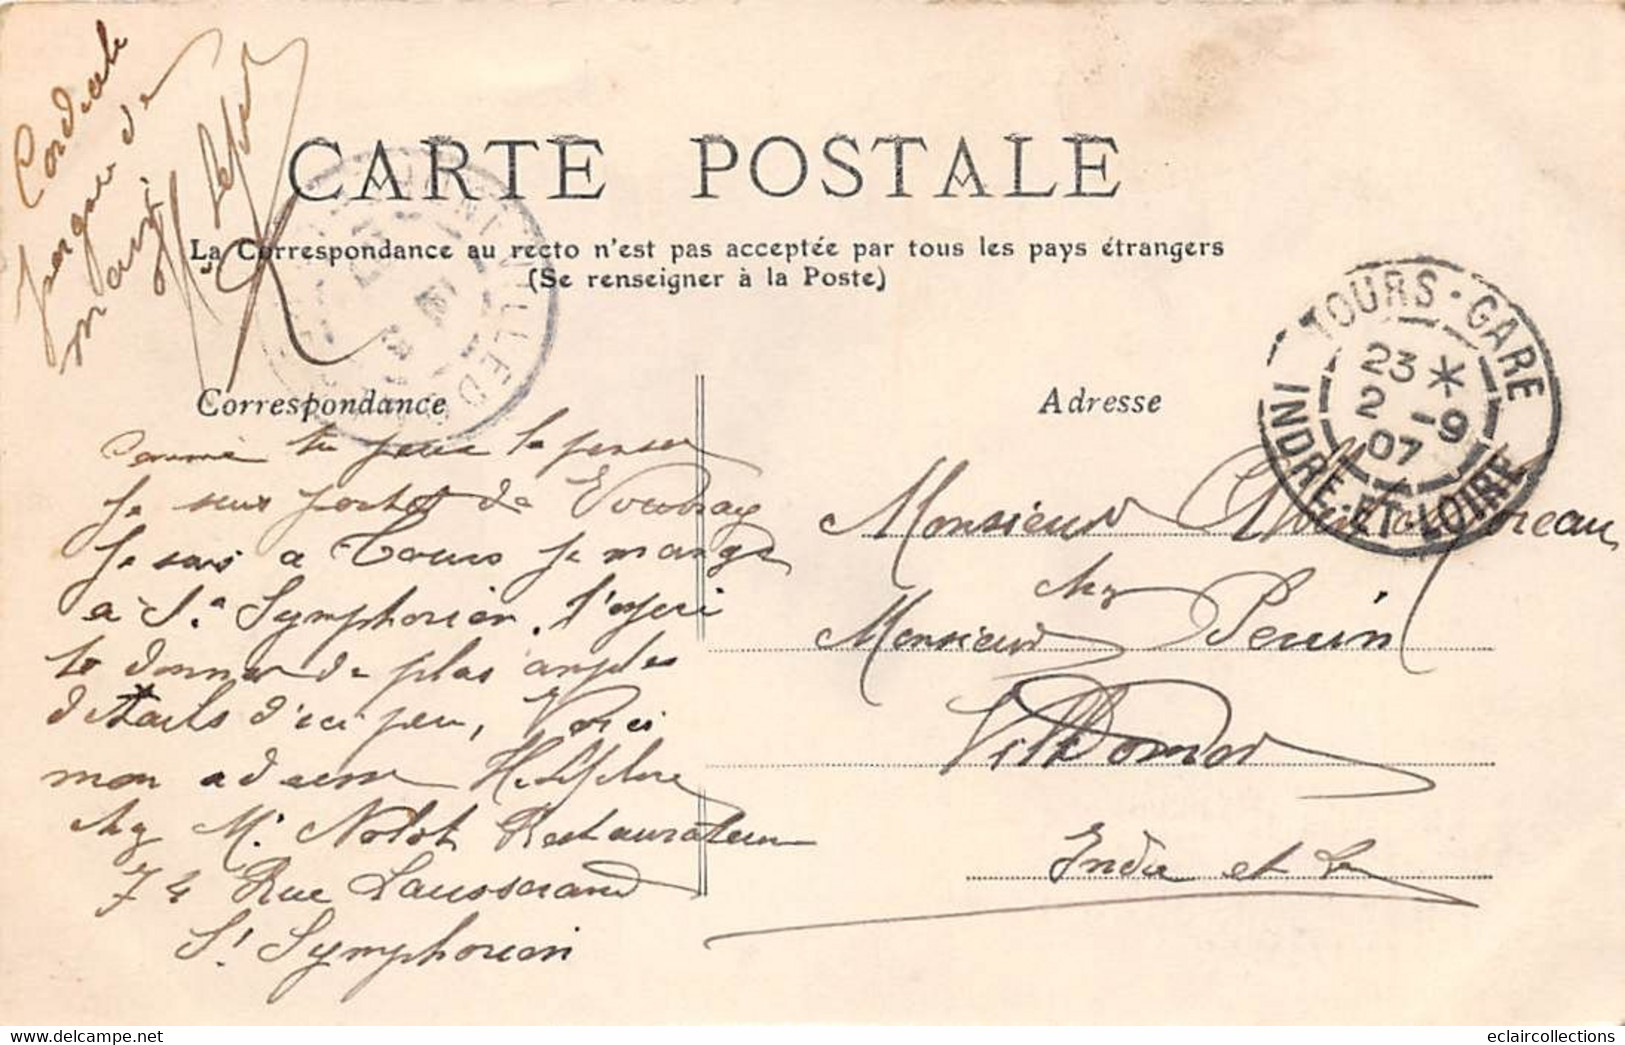 Cordiale
poignée de
main
H Lefebvre
CARTE POSTALE
La Correspondance au recto n'est pas acceptée par tous les pays étrangers
(Se renseigner à la Poste)
TOURS-GARE
23 *
2 -9
07
INDRE-ET-LOIRE
Correspondance
Adresse
Comme tu peux le penser
je suis parti de Vouvray
je suis a Tours je mange
a St Symphorien, j'esperi
te donner de plus amples
details d'ici peu, Voici
mon adresse H. Lefebvre
chez Mr Nolot Restaurateur
74 Rue Lausserand
St Symphorien
Monsieur Moreau
chez
Monsieur Perrin
Villedomer
Indre et L
Ansichtskarten - Delcampe.net
eclaircollections